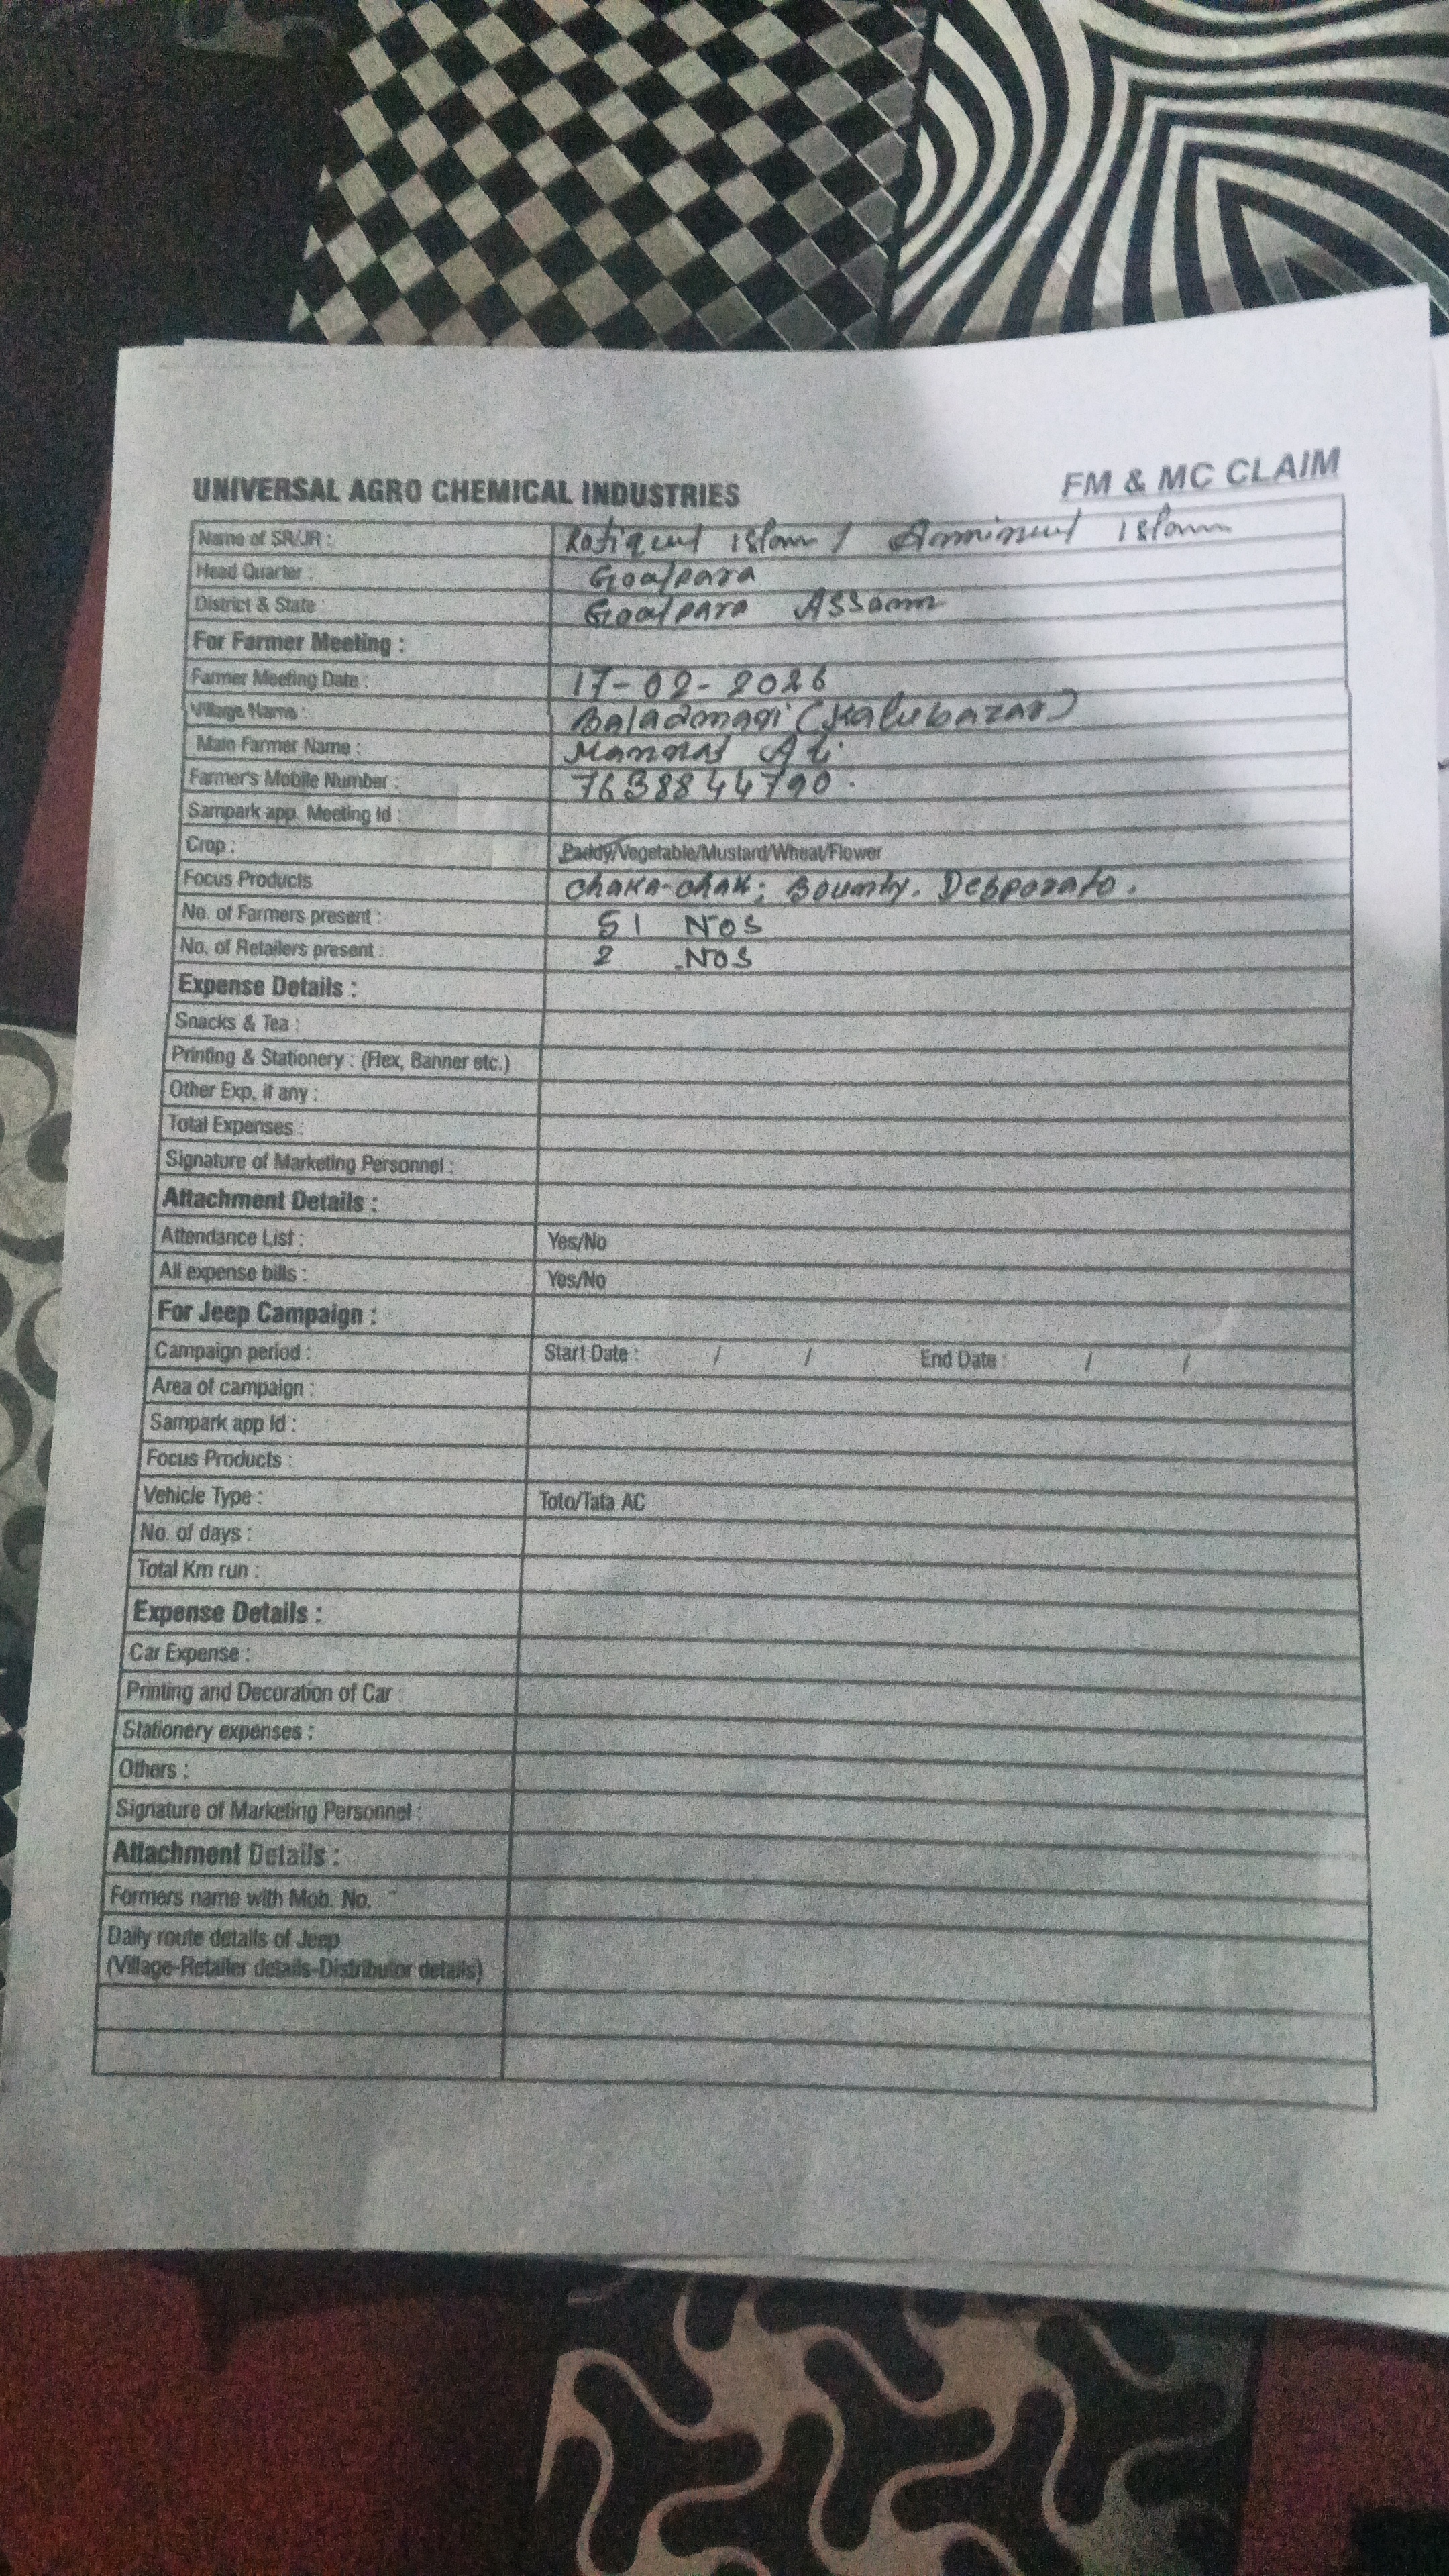 UNIVERSAL AGRO CHEMICAL INDUSTRIES FM & MC CLAIM
Name of SR/JR : Rofiqul islam / Aminul islam
Head Quarter : Goalpara
District & State : Goalpara Assam
For Farmer Meeting :
Farmer Meeting Date : 17-02-2026
Village Name : Baladmari (Kalubazar)
Main Farmer Name : Ali
Farmer's Mobile Number : 7638844790.
Sampark app. Meeting Id :
Crop : Paddy/Vegetable/Mustard/Wheat/Flower
Focus Products chaka-chak; Bounty. Desporato.
No. of Farmers present : 51 NOS
No. of Retailers present : 2 NOS
Expense Details :
Snacks & Tea :
Printing & Stationery : (Flex, Banner etc.)
Other Exp, if any :
Total Expenses :
Signature of Marketing Personnel :
Attachment Details :
Attendance List : Yes/No
All expense bills : Yes/No
For Jeep Campaign :
Campaign period : Start Date : / / End Date : / /
Area of campaign :
Sampark app Id :
Focus Products :
Vehicle Type : Toto/Tata AC
No. of days :
Total Km run :
Expense Details :
Car Expense :
Printing and Decoration of Car :
Stationery expenses :
Others :
Signature of Marketing Personnel :
Attachment Details :
Formers name with Mob. No.
Daily route details of Jeep
(Village-Retailer details-Distributor details)